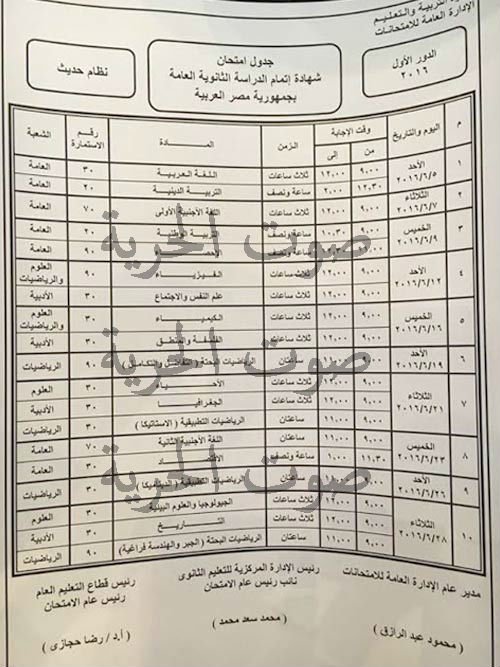 وزارة التربية والتعليم
الإدارة العامة للامتحانات
الدور الأول
٢٠١٦
جدول امتحان
شهادة إتمام الدراسة الثانوية العامة
بجمهورية مصر العربية
نظام حديث
م اليوم والتاريخ وقت الإجابة الزمن المــــادة رقم الاستمارة الشعبة
من إلى
١ الأحد ٢٠١٦/٦/٥ ٩,٠٠ ١٢,٠٠ ثلاث ساعات اللـغـة العـربيـة ٣٠ العامة
١٢,٣٠ ٢,٠٠ ساعة ونصف التربيـة الدينيـة ٢٠ العامة
٢ الثلاثاء ٢٠١٦/٦/٧ ٩,٠٠ ١٢,٠٠ ثلاث ساعات اللغة الأجنبية الأولى ٧٠ العامة
٣ الخميس ٢٠١٦/٦/٩ ٩,٠٠ ١٠,٣٠ ساعة ونصف التربيـة الوطنيـة ٢٠ العامة
ساعة ونصف الإحصـــاء ٩٠ العامة
٤ الأحد ٢٠١٦/٦/١٢ ٩,٠٠ ١٢,٠٠ ثلاث ساعات الفيـزيـــاء ٩٠ العلوم والرياضيات
٩,٠٠ ١٢,٠٠ ثلاث ساعات علم النفس والاجتماع ٣٠ الأدبية
٥ الخميس ٢٠١٦/٦/١٦ ٩,٠٠ ١٢,٠٠ ثلاث ساعات الكيميـــاء ٣٠ العلوم والرياضيات
٩,٠٠ ١٢,٠٠ ثلاث ساعات الفلسفة والمنطق ٣٠ الأدبية
٦ الأحد ٢٠١٦/٦/١٩ ٩,٠٠ ١١,٠٠ ساعتان الرياضيات البحتة ( التفاضل والتكامل ) ٩٠ الرياضيات
٧ الثلاثاء ٢٠١٦/٦/٢١ ٩,٠٠ ١٢,٠٠ ثلاث ساعات الأحيـــاء ٣٠ العلوم
٩,٠٠ ١٢,٠٠ ثلاث ساعات الجغرافيـا ٣٠ الأدبية
٩,٠٠ ١١,٠٠ ساعتان الرياضيات التطبيقية ( الاستاتيكا ) ٣٠ الرياضيات
٨ الخميس ٢٠١٦/٦/٢٣ ٩,٠٠ ١١,٠٠ ساعتان اللغة الأجنبية الثانية ٧٠ العامة
١١,٣٠ ١,٠٠ ساعة ونصف الاقتصـــاد ٣٠ العامة
٩ الأحد ٢٠١٦/٦/٢٦ ٩,٠٠ ١١,٠٠ ساعتان الرياضيات التطبيقية ( الديناميكا ) ٣٠ الرياضيات
١٠ الثلاثاء ٢٠١٦/٦/٢٨ ٩,٠٠ ١٢,٠٠ ثلاث ساعات الجيولوجيا والعلوم البيئية ٣٠ العلوم
٩,٠٠ ١٢,٠٠ ثلاث ساعات التـــاريـــخ ٣٠ الأدبية
٩,٠٠ ١١,٠٠ ساعتان الرياضيات البحتة (الجبر والهندسة فراغية) ٩٠ الرياضيات
صوت الحرية
صوت الحرية
صوت الحرية
مدير عام الإدارة العامة للامتحانات
( محمود عبد الرازق )
رئيس الإدارة المركزية للتعليم الثانوى
نائب رئيس عام الامتحان
( محمد سعد محمد )
رئيس قطاع التعليم العام
رئيس عام الامتحان
( أ.د/ رضا حجازى )